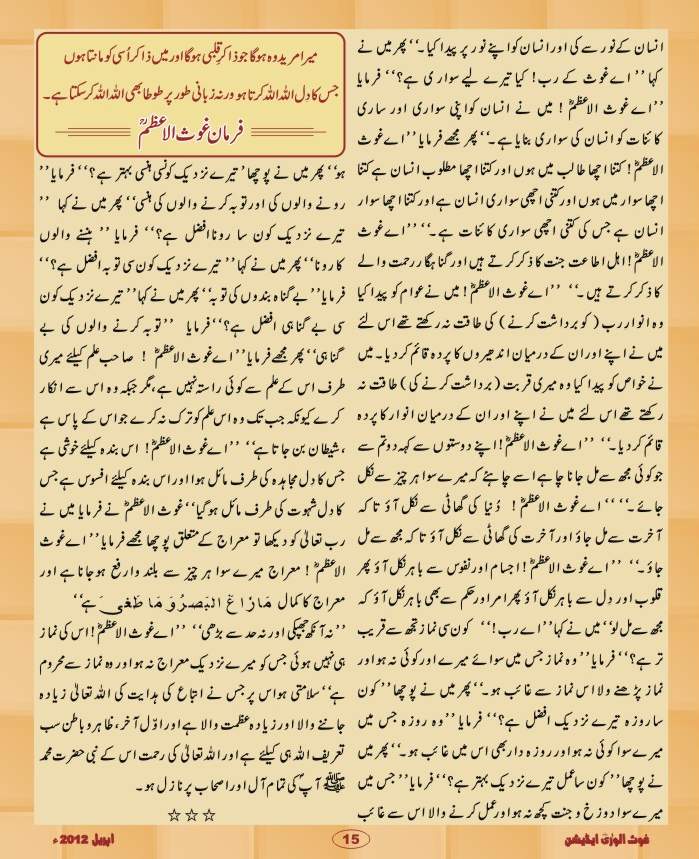 انسان کے نور سے کی اور انسان کو اپنے نور پر پیدا کیا۔‘‘ پھر میں نے
کہا ’’اے غوث کے رب! کیا تیرے لیے سواری ہے؟‘‘ فرمایا
’’اے غوث الاعظمؓ! میں نے انسان کو اپنی سواری اور ساری
کائنات کو انسان کی سواری بنایا ہے۔‘‘ پھر مجھے فرمایا ’’اے غوث
الاعظمؓ! کتنا اچھا طالب میں ہوں اور کتنا اچھا مطلوب انسان ہے کتنا
اچھا سوار میں ہوں اور کتنی اچھی سواری انسان ہے اور کتنا اچھا سوار
انسان ہے جس کی کتنی اچھی سواری کائنات ہے۔‘‘ ’’اے غوث
الاعظمؓ! اہل اطاعت جنت کا ذکر کرتے ہیں اور گناہگار رحمت والے
کا ذکر کرتے ہیں۔‘‘ ’’اے غوث الاعظمؓ! میں نے عوام کو پیدا کیا
وہ انوار رب (کو برداشت کرنے) کی طاقت نہ رکھتے تھے اس لئے
میں نے اپنے اور ان کے درمیان اندھیروں کا پردہ قائم کر دیا۔ میں
نے خواص کو پیدا کیا وہ میری قربت (برداشت کرنے کی) طاقت نہ
رکھتے تھے اس لئے میں نے اپنے اور ان کے درمیان انوار کا پردہ
قائم کر دیا۔‘‘ ’’اے غوث الاعظمؓ! اپنے دوستوں سے کہہ دو تم سے
جو کوئی مجھ سے مل جانا چاہے اسے چاہئے کہ میرے سوا ہر چیز سے نکل
جائے۔‘‘ ’’اے غوث الاعظمؓ! دُنیا کی گھاٹی سے نکل آؤ تا کہ
آخرت سے مل جاؤ اور آخرت کی گھاٹی سے نکل آؤ تا کہ مجھ سے مل
جاؤ۔‘‘ ’’اے غوث الاعظمؓ! اجسام اور نفوس سے باہر نکل آؤ پھر
قلوب اور دل سے باہر نکل آؤ پھر امر اور حکم سے بھی باہر نکل آؤ کہ
مجھ سے مل لو‘‘ میں نے کہا’’اے رب! کون سی نماز تجھ سے قریب
تر ہے؟‘‘ فرمایا’’ وہ نماز جس میں سوائے میرے اور کوئی نہ ہو اور
نماز پڑھنے ولا اس نماز سے غائب ہو۔‘‘ پھر میں نے پوچھا ’’کون
سا روزہ تیرے نزدیک افضل ہے؟‘‘ فرمایا ’’وہ روزہ جس میں
میرے سوا کوئی نہ ہو اور روزہ دار بھی اس میں غائب ہو۔‘‘ پھر میں
نے پوچھا’’ کون سا عمل تیرے نزدیک بہتر ہے؟‘‘ فرمایا’’ جس میں
میرے سوا دوزخ و جنت کچھ نہ ہو اور عمل کرنے والا اس سے غائب
میرا مرید وہ ہوگا جو ذاکرِ قلبی ہوگا اور میں ذاکر اُسی کو مانتا ہوں
جس کا دل اللہ اللہ کرتا ہو ورنہ زبانی طور پر طوطا بھی اللہ اللہ کر سکتا ہے۔
فرمان غوث الاعظمؓ
ہو‘‘ پھر میں نے پوچھا’’ تیرے نزدیک کونسی ہنسی بہتر ہے؟‘‘ فرمایا’’
رونے والوں کی اور توبہ کرنے والوں کی ہنسی‘‘ پھر میں نے کہا ’’
تیرے نزدیک کون سا رونا افضل ہے؟‘‘ فرمایا ’’ ہنسنے والوں
کا رونا‘‘ پھر میں نے کہا’’ تیرے نزدیک کون سی توبہ افضل ہے؟‘‘
فرمایا’’بے گناہ بندوں کی توبہ‘‘ پھر میں نے کہا’’ تیرے نزدیک کون
سی بے گناہی افضل ہے؟‘‘ فرمایا ’’توبہ کرنے والوں کی بے
گناہی‘‘ پھر مجھے فرمایا’’اے غوث الاعظمؓ! صاحب علم کیلئے میری
طرف اس کے علم سے کوئی راستہ نہیں ہے، مگر جبکہ وہ اس سے انکار
کرے کیونکہ جب تک وہ اس علم کو ترک نہ کرے جو اس کے پاس ہے
، شیطان بن جاتا ہے‘‘ ’’اے غوث الاعظمؓ! اس بندہ کیلئے خوشی ہے
جس کا دل مجاہدہ کی طرف مائل ہوا اور اس بندہ کیلئے افسوس ہے جس
کا دل شہوت کی طرف مائل ہو گیا‘‘ غوث الاعظمؓ نے فرمایا میں نے
رب تعالیٰ کو دیکھا تو معراج کے متعلق پوچھا مجھے فرمایا ’’اے غوث
الاعظمؓ! معراج میرے سوا ہر چیز سے بلند وارفع ہوجانا ہے اور
معراج کا کمال مَازَاغَ الْبَصَرُ وَمَا طَغٰی ہے‘‘
’’نہ آنکھ جھپکی اور نہ حد سے بڑھی‘‘ ’’اے غوث الاعظمؓ! اس کی نماز
ہی نہیں ہوئی جس کو میرے نزدیک معراج نہ ہو اور وہ نماز سے محروم
ہے‘‘ سلامتی ہو اس پر جس نے اتباع کی ہدایت کی اللہ تعالیٰ زیادہ
جاننے والا اور زیادہ عظمت والا ہے اور اوّل آخر، ظاہر و باطن سب
تعریف اللہ ہی کیلئے ہے اور اللہ تعالیٰ کی رحمت اس کے نبی حضرت محمد
ﷺ آپ کی تمام آل اور اصحاب پر نازل ہو۔
☆☆☆
غوث الوریٰ ایڈیشن
15
اپریل 2012ء